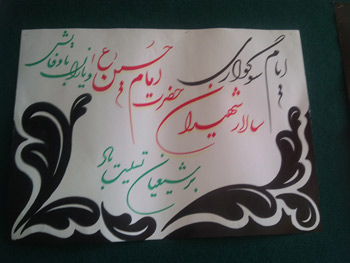 ایام سوگواری
سالار شهیدان
حضرت امام حسین (ع)
و یاران باوفایش
بر شیعیان تسلیت باد